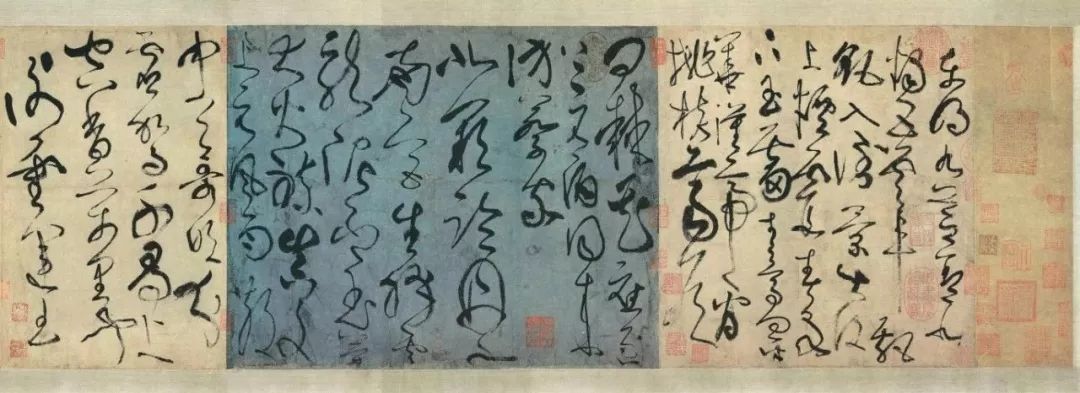 東明九芝蓋北
燭五雲車飄
飖入倒景出没
上煙霞春泉
下玉霤青鳥向金
華漢帝看
桃核齊侯
問棘花應逐上
元酒同來
訪蔡家
北闕臨丹水
南宮生絳雲
龍泥印玉簡
大火煉真文
上元風雨散
中天哥吹分
虛駕千尋上
空香萬里聞
謝靈運王